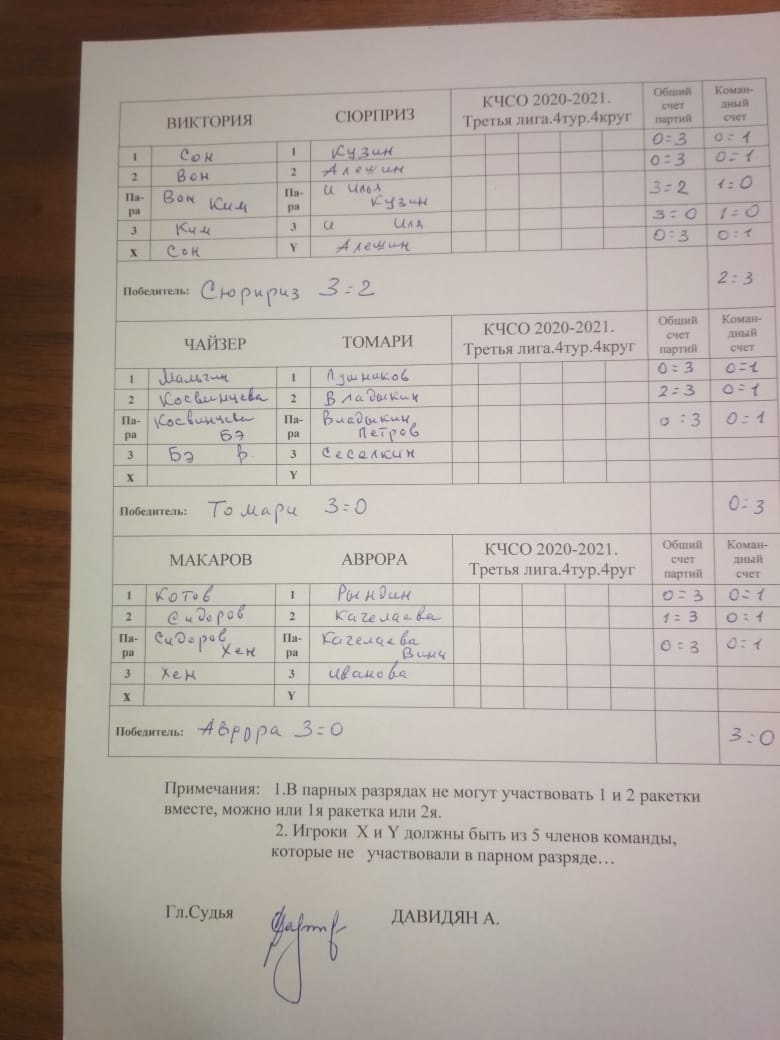 ВИКТОРИЯ СЮРПРИЗ КЧСО 2020-2021. Третья лига.4тур.4круг Общий счет партий Коман-дный счет
1 Сон 1 Кузин 0=3 0=1
2 Вон 2 Алешин 0=3 0=1
Па-ра Вон Ким Па-ра И Илья Кузин 3=2 1=0
3 Ким 3 И Иля 3=0 1=0
X Сон Y Алешин 0=3 0=1
Победитель: Сюририз 3=2 2=3
ЧАЙЗЕР ТОМАРИ КЧСО 2020-2021. Третья лига.4тур.4круг Общий счет партий Коман-дный счет
1 Мальгин 1 Лушников 0=3 0=1
2 Косвинцева 2 Владыкин 2=3 0=1
Па-ра Косвинцева Бэ Па-ра Владыкин Петров 0=3 0=1
3 Бэ В. 3 Сеселкин
X Y
Победитель: Томари 3=0 0=3
МАКАРОВ АВРОРА КЧСО 2020-2021. Третья лига.4тур.4руг Общий счет партий Коман-дный счет
1 Котов 1 Рындин 0=3 0=1
2 Сидоров 2 Качелаева 1=3 0=1
Па-ра Сидоров Хен Па-ра Качелаева 0=3 0=1
3 Хен 3 Иванова
X Y
Победитель: Аврора 3=0 3=0
Примечания: 1.В парных разрядах не могут участвовать 1 и 2 ракетки
вместе, можно или 1я ракетка или 2я.
2. Игроки X и Y должны быть из 5 членов команды,
которые не участвовали в парном разряде…
Гл.Судья ДАВИДЯН А.